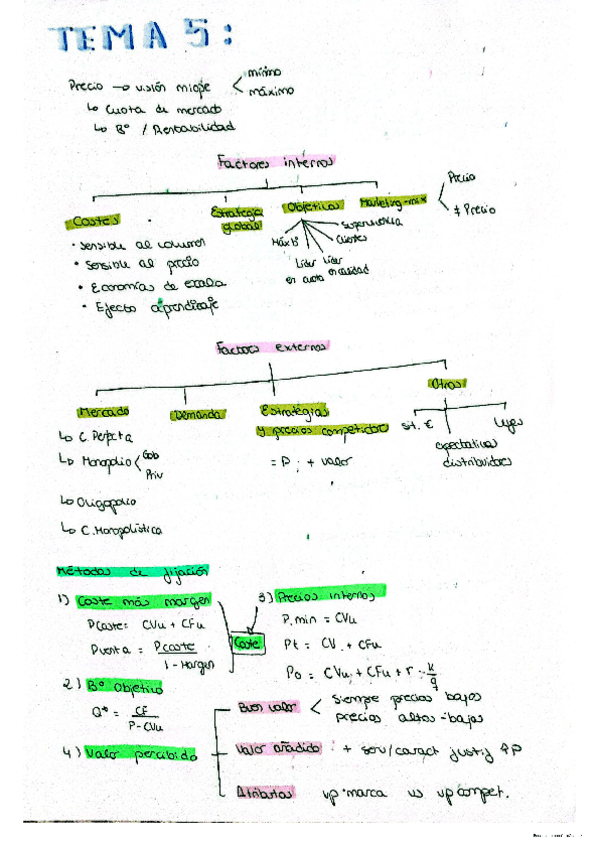 TEMA 5:
Precio → visión miope < mínimo
máximo
↳ Cuota de mercado
↳ Bº / Rentabilidad
Factores internos
Costes
Estrategia global
Objetivos
Marketing-mix
Precio
≠ Precio
· Sensible al volumen
· Sensible al precio
· Economías de escala
· Efecto aprendizaje
Máx Bº
Líder en cuota
Líder en calidad
Clientes
Supervivencia
Factores externos
Mercado
Demanda
Estrategias
y precios competidores
Otros
↳ C. Perfecta
↳ Monopolio < Gob
Priv
↳ Oligopolio
↳ C. Monopolística
= P ; + valor
sit. €
expectativas
distribuidores
leyes
Métodos de fijación
1) Coste más margen
Pcoste = CVu + CFu
Pventa = Pcoste / 1 - Margen
Coste
3) Precios internos
P.min = CVu
Pt = CV + CFu
Po = CVu + CFu + r · k/q
2) Bº Objetivo
Q* = CF / P - CVu
4) Valor percibido
Buen valor < Siempre precios bajos
precios altos - bajos
Valor añadido : + serv/caract justif ↑P
Atributos vp. marca vs vp compet.